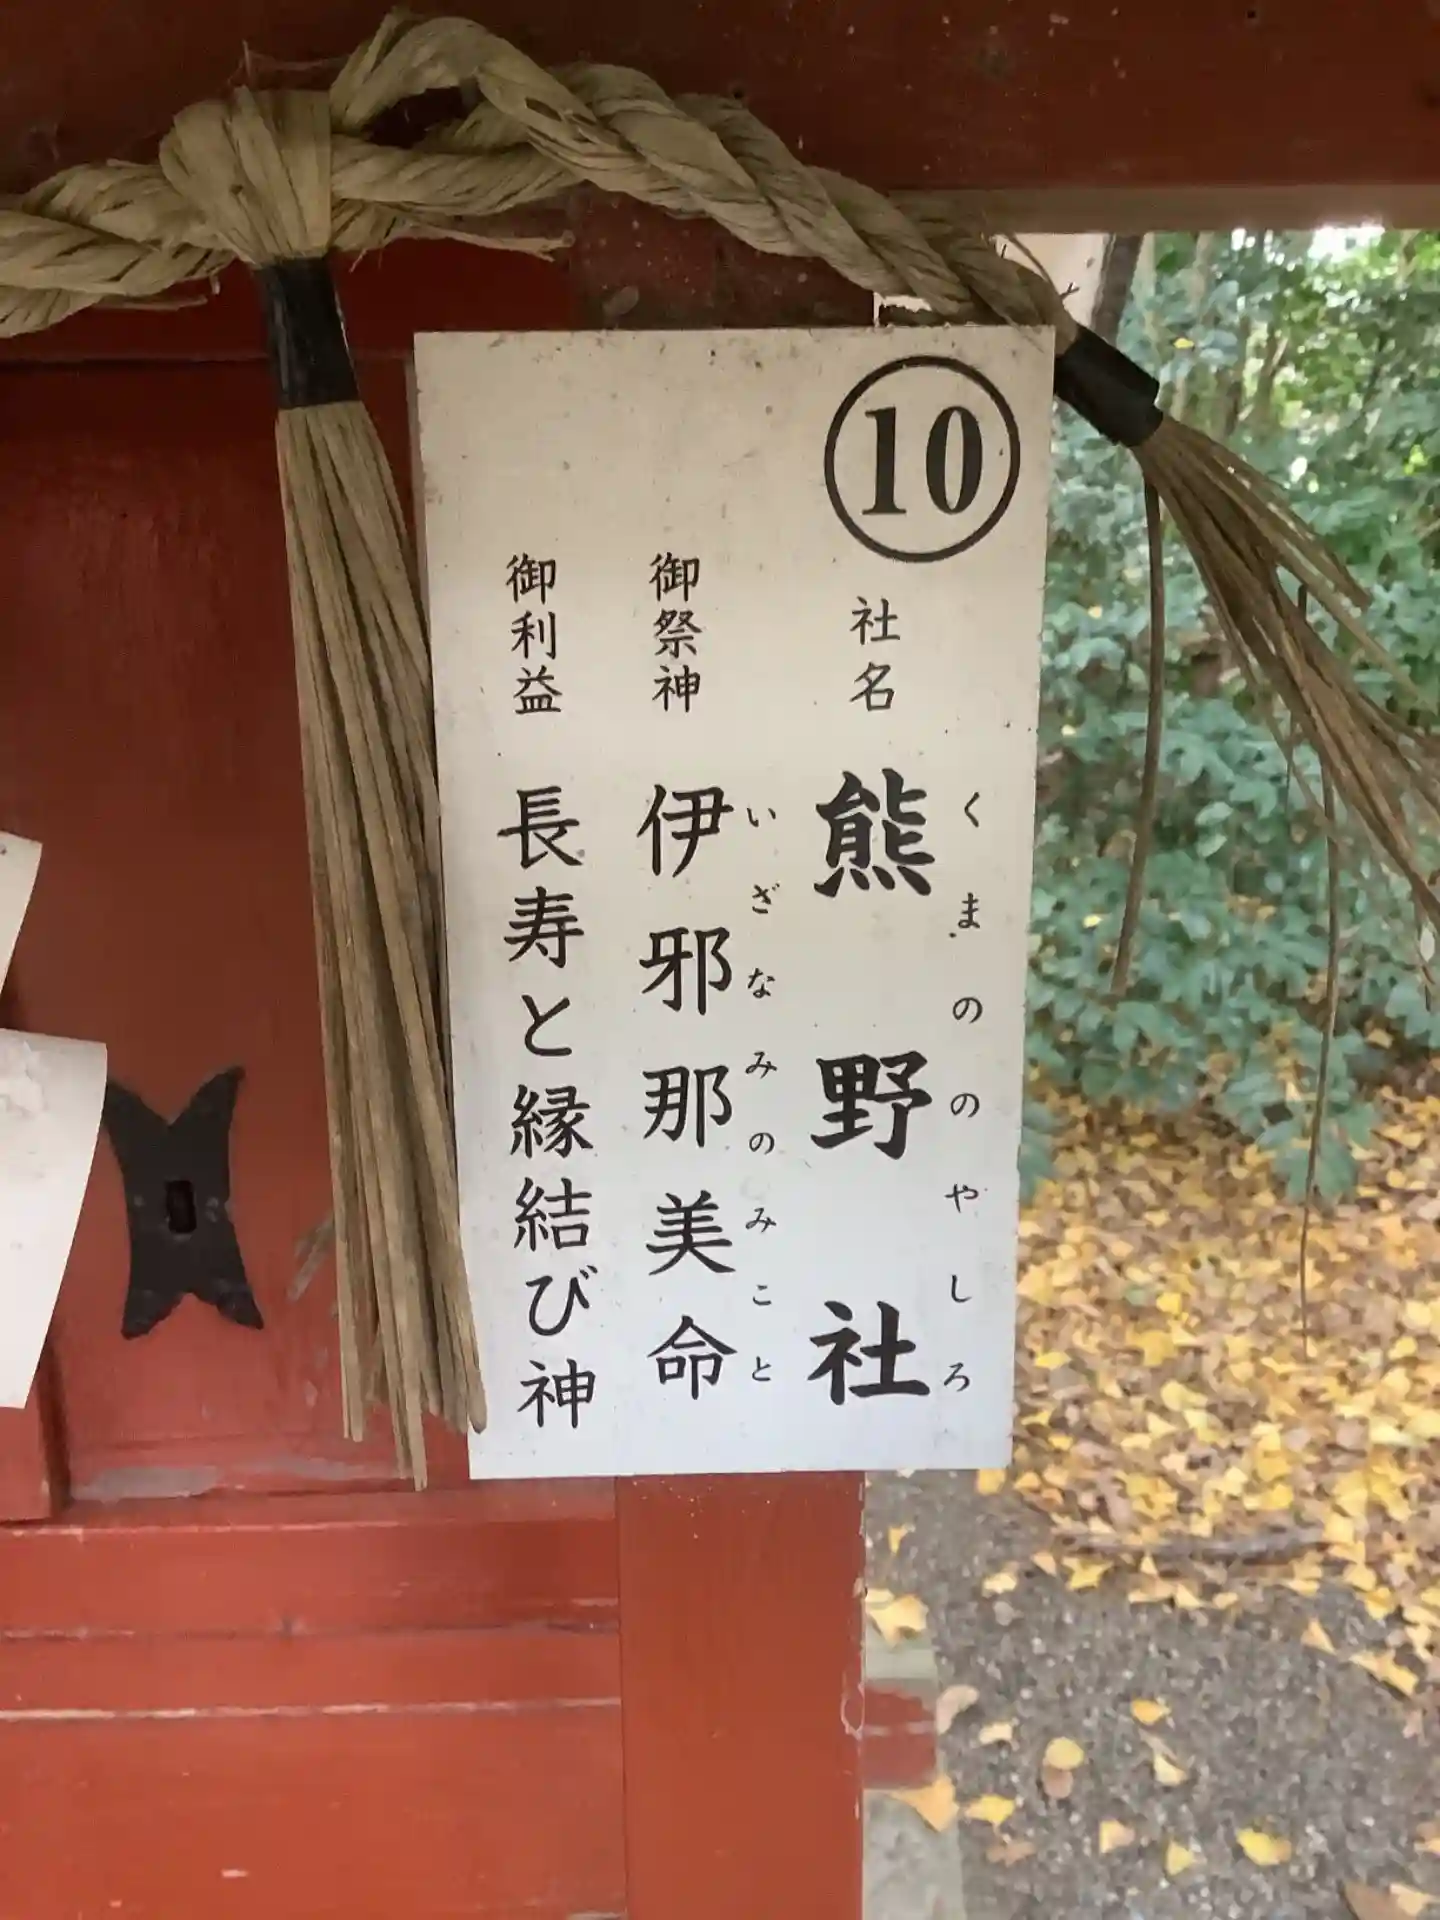 ⑩
社名 熊野社
くまののやしろ
御祭神 伊邪那美命
いざなみのみこと
御利益 長寿と縁結び神